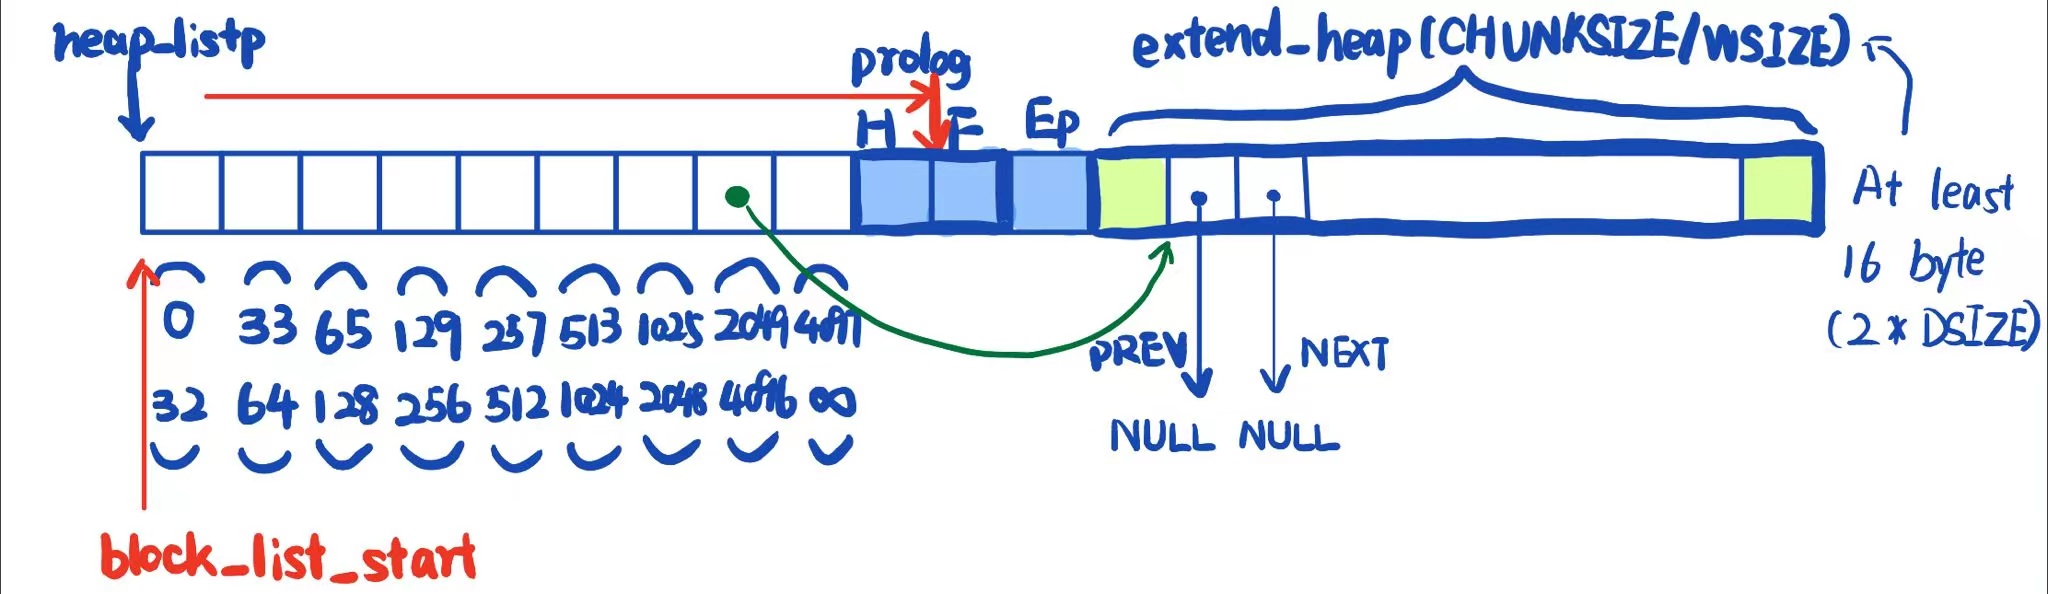 heap_listp
prolog
extend_heap(CHUNKSIZE/WSIZE)
H F Ep
At least
16 byte
(2 * DSIZE)
0 33 65 129 257 513 1025 2049 4097
32 64 128 256 512 1024 2048 4096 ∞
PREV NEXT
NULL NULL
block_list_start